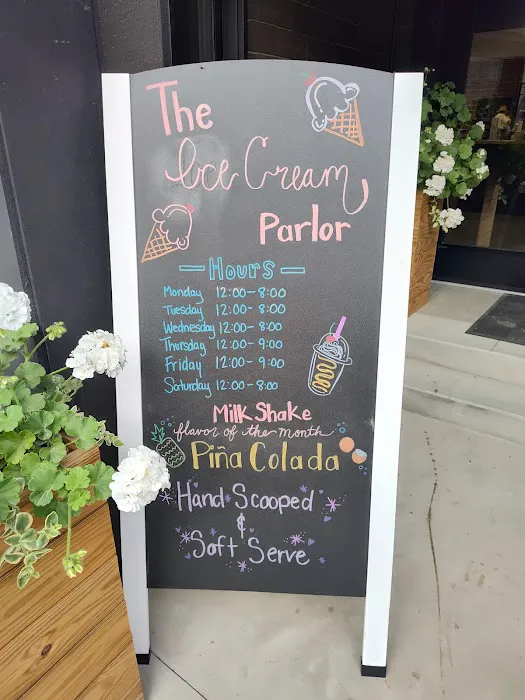 The
Ice Cream
Parlor
Hours
Monday 12:00-8:00
Tuesday 12:00-8:00
Wednesday 12:00-8:00
Thursday 12:00-9:00
Friday 12:00-9:00
Saturday 12:00-8:00
Milk Shake
flavor of the month
Piña Colada
Hand Scooped
&
Soft Serve